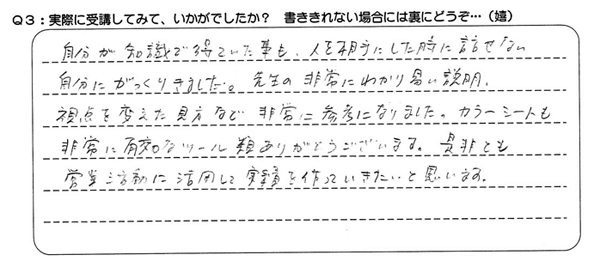 Q3：実際に受講してみて、いかがでしたか？　書ききれない場合には裏にどうぞ…（嬉）
自分が知識で得ていた事も、人を相手にした時に話せない
自分にがっくりきました。先生の非常にわかり易い説明、
視点を変えた見方など非常に参考になりました。カラーシートも
非常に有効なツール類ありがとうございます。是非とも
営業活動に活用して実績を作っていきたいと思います。